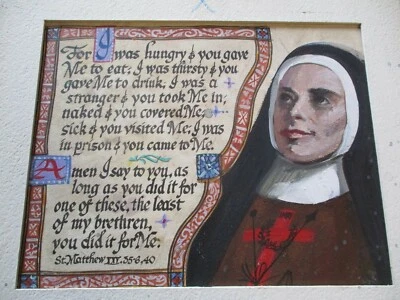 For I was hungry & you gave
Me to eat; I was thirsty & you
gave Me to drink; I was a
stranger & you took Me in;
naked & you covered Me;
sick & you visited Me; I was
in prison & you came to Me.
Amen I say to you, as
long as you did it for
one of these, the least
of my brethren,
you did it for Me.
St. Matthew XXV. 35-6, 40